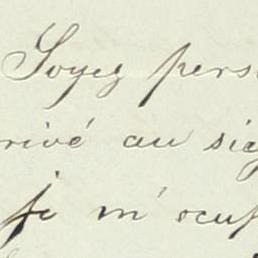 Soyez pers
rivé au sié
je m'ocup